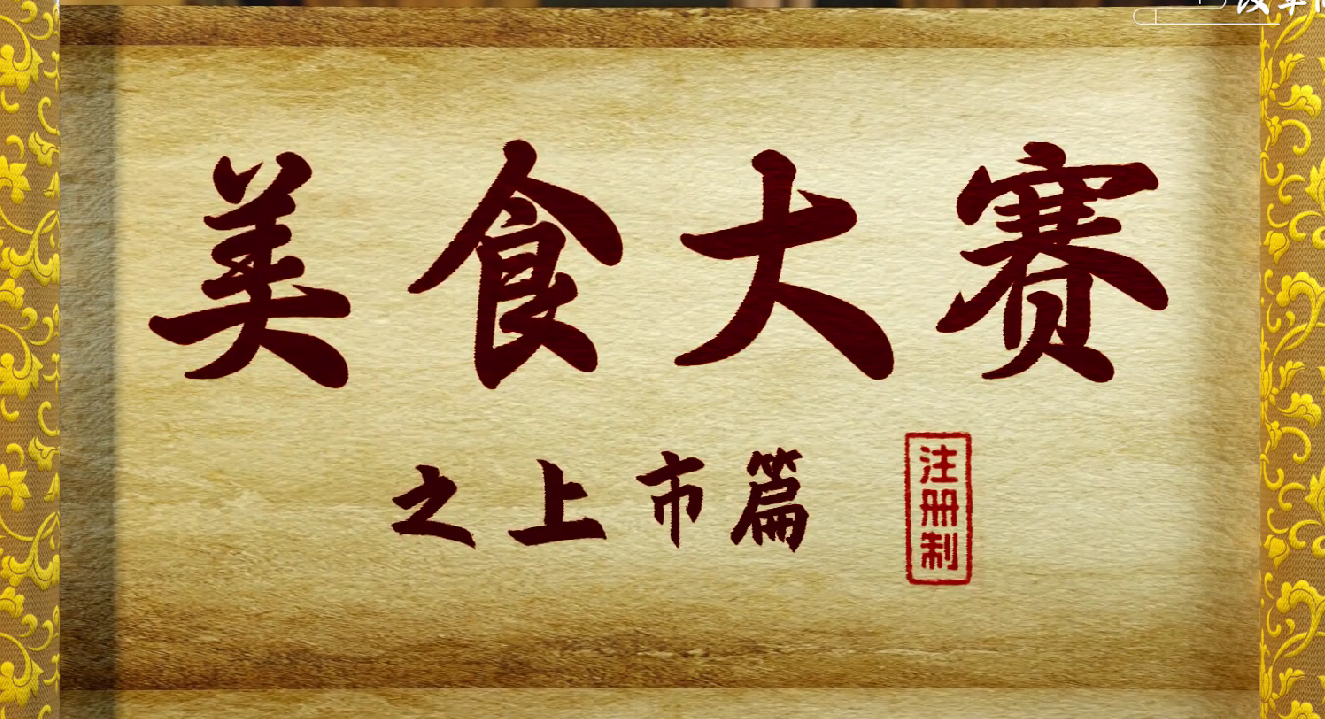 美食大赛
之上市篇
注册制